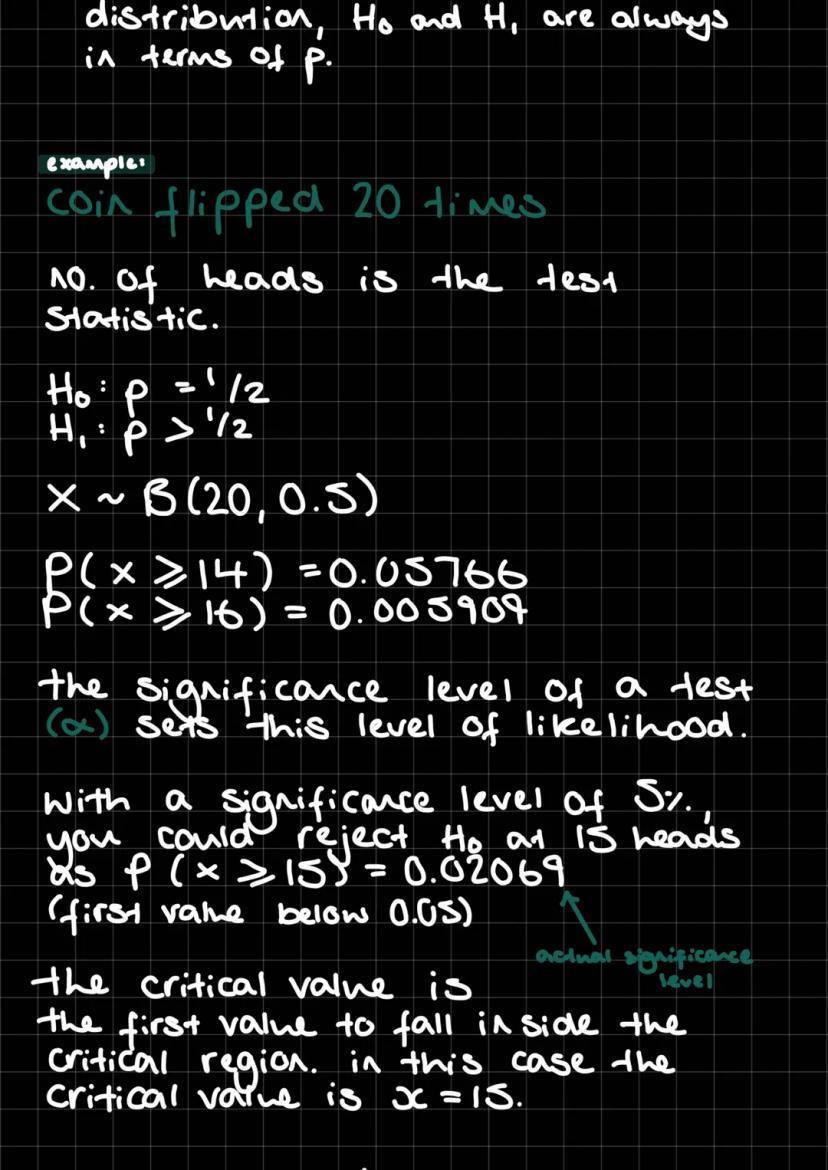 distribution, H₀ and H₁ are always
in terms of p.
example:
coin flipped 20 times
no. of heads is the test
statistic.
H₀: p = 1/2
H₁: p > 1/2
X ~ B(20, 0.5)
P(x ⩾ 14) = 0.05766
P(x ⩾ 16) = 0.005909
the significance level of a test
(α) sets this level of likelihood.
With a significance level of 5%,
you could reject H₀ at 15 heads
as P(x ⩾ 15) = 0.02069
(first value below 0.05)
actual significance
level
the critical value is
the first value to fall inside the
critical region. in this case the
critical value is x = 15.